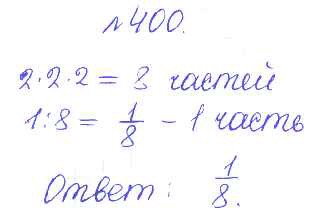 №400.
2·2·2 = 8 частей
1:8 = 1/8 - 1 часть
Ответ: 1/8.